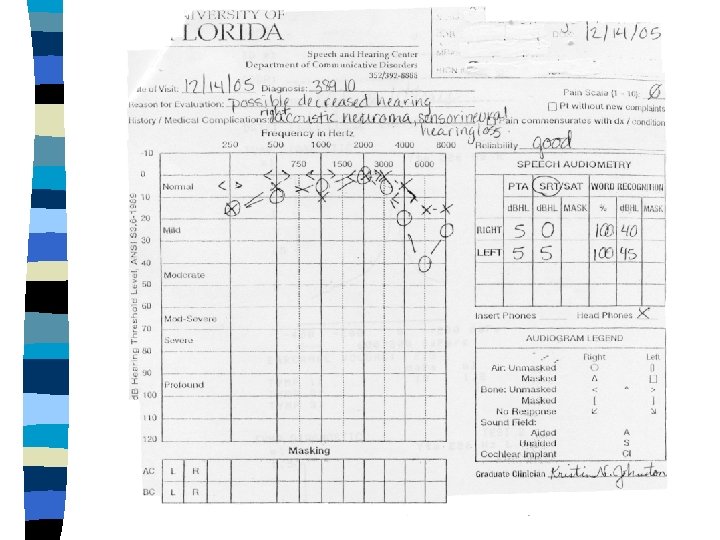 UNIVERSITY OF
FLORIDA
Speech and Hearing Center
Department of Communicative Disorders
352/392-8888
12/14/05
of Visit: 12/14/05 Diagnosis: 389.10
Pain Scale (1 - 10): 0
Reason for Evaluation: possible decreased hearing
Pt without new complaints
History / Medical Complications: right acoustic neuroma, sensorineural hearing loss.
Pain commensurates with dx / condition
Frequency in Hertz
Reliability good
250 500 1000 2000 4000 8000
750 1500 3000 6000
dB Hearing Threshold Level, ANSI S3.6-1989
-10
0
Normal
10
20
Mild
30
40
Moderate
50
60
Mod-Severe
70
Severe
80
90
Profound
100
110
120
Masking
AC L R
BC L R
SPEECH AUDIOMETRY
PTA SRT/SAT WORD RECOGNITION
dBHL dBHL MASK % dBHL MASK
RIGHT 5 0 100 40
LEFT 5 5 100 45
Insert Phones Head Phones X
AUDIOGRAM LEGEND
Right Left
Air: Unmasked
Masked
Bone: Unmasked < ^ >
Masked [ ]
No Response
Sound Field:
Aided A
Unaided S
Cochlear implant CI
Graduate Clinician Kristin N. Johnston